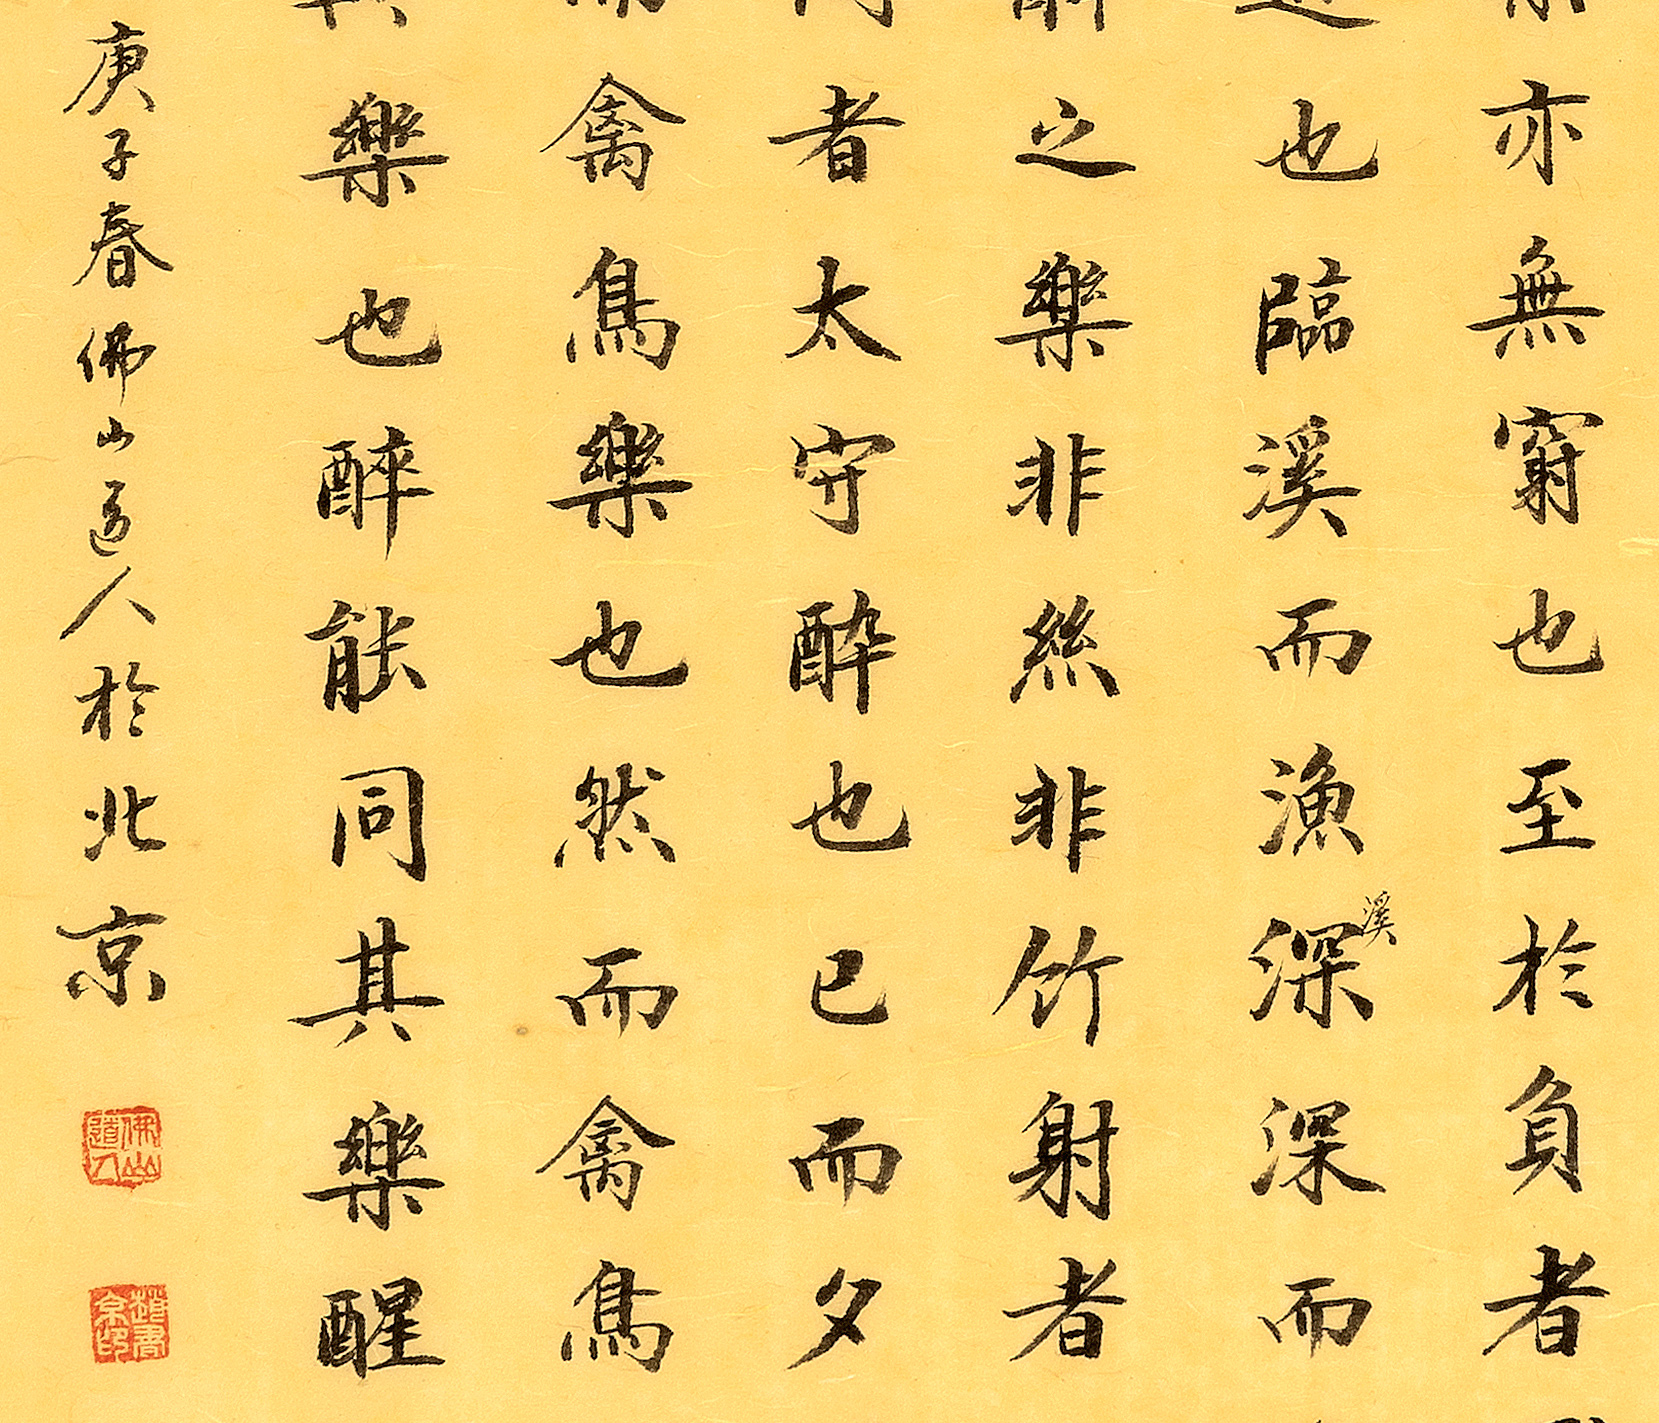 亦無窮也至於負者
也臨溪而漁深溪深而
之樂非絲非竹射者
者太守醉也已而夕
禽鳥樂也然而禽鳥
樂也醉能同其樂醒
庚子春佛山道人於北京
佛山道人